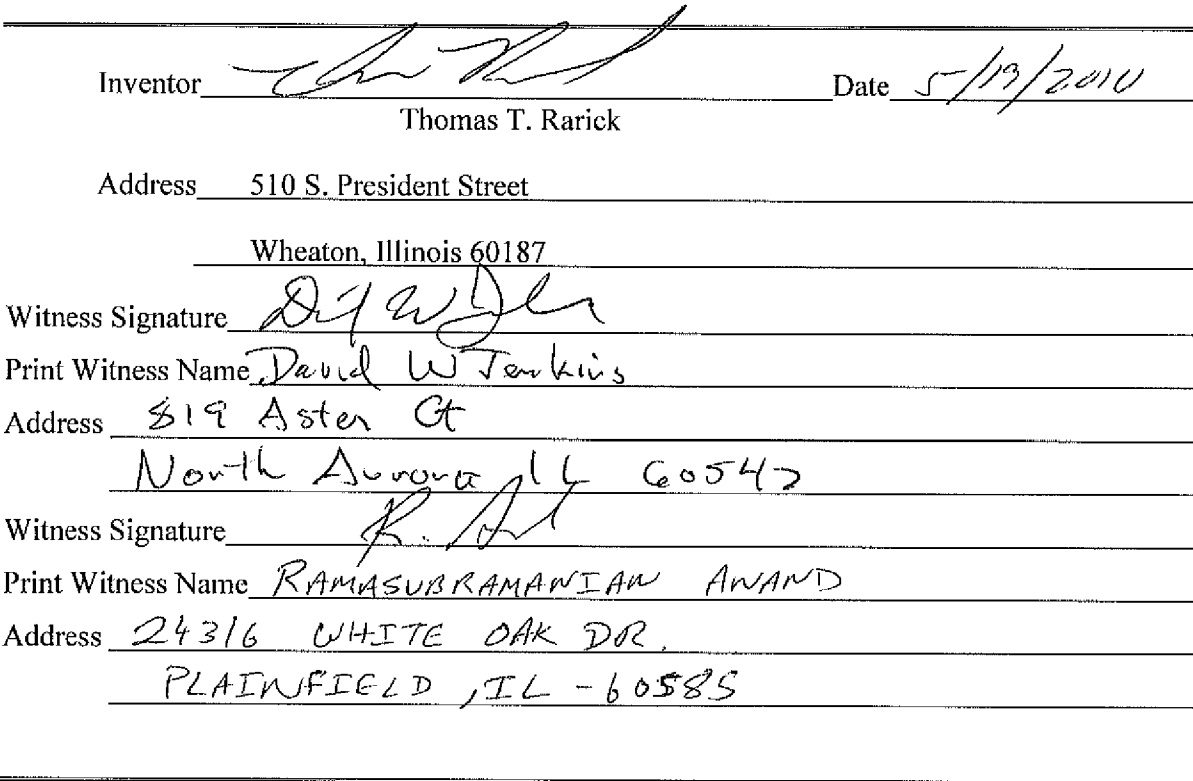 Inventor Date 5/19/2010
Thomas T. Rarick
Address 510 S. President Street
Wheaton, Illinois 60187
Witness Signature
Print Witness Name David W Jenkins
Address 819 Aster Ct
North Aurora IL 60542
Witness Signature R.
Print Witness Name RAMASUBRAMANIAN ANAND
Address 24316 WHITE OAK DR.
PLAINFIELD, IL - 60585